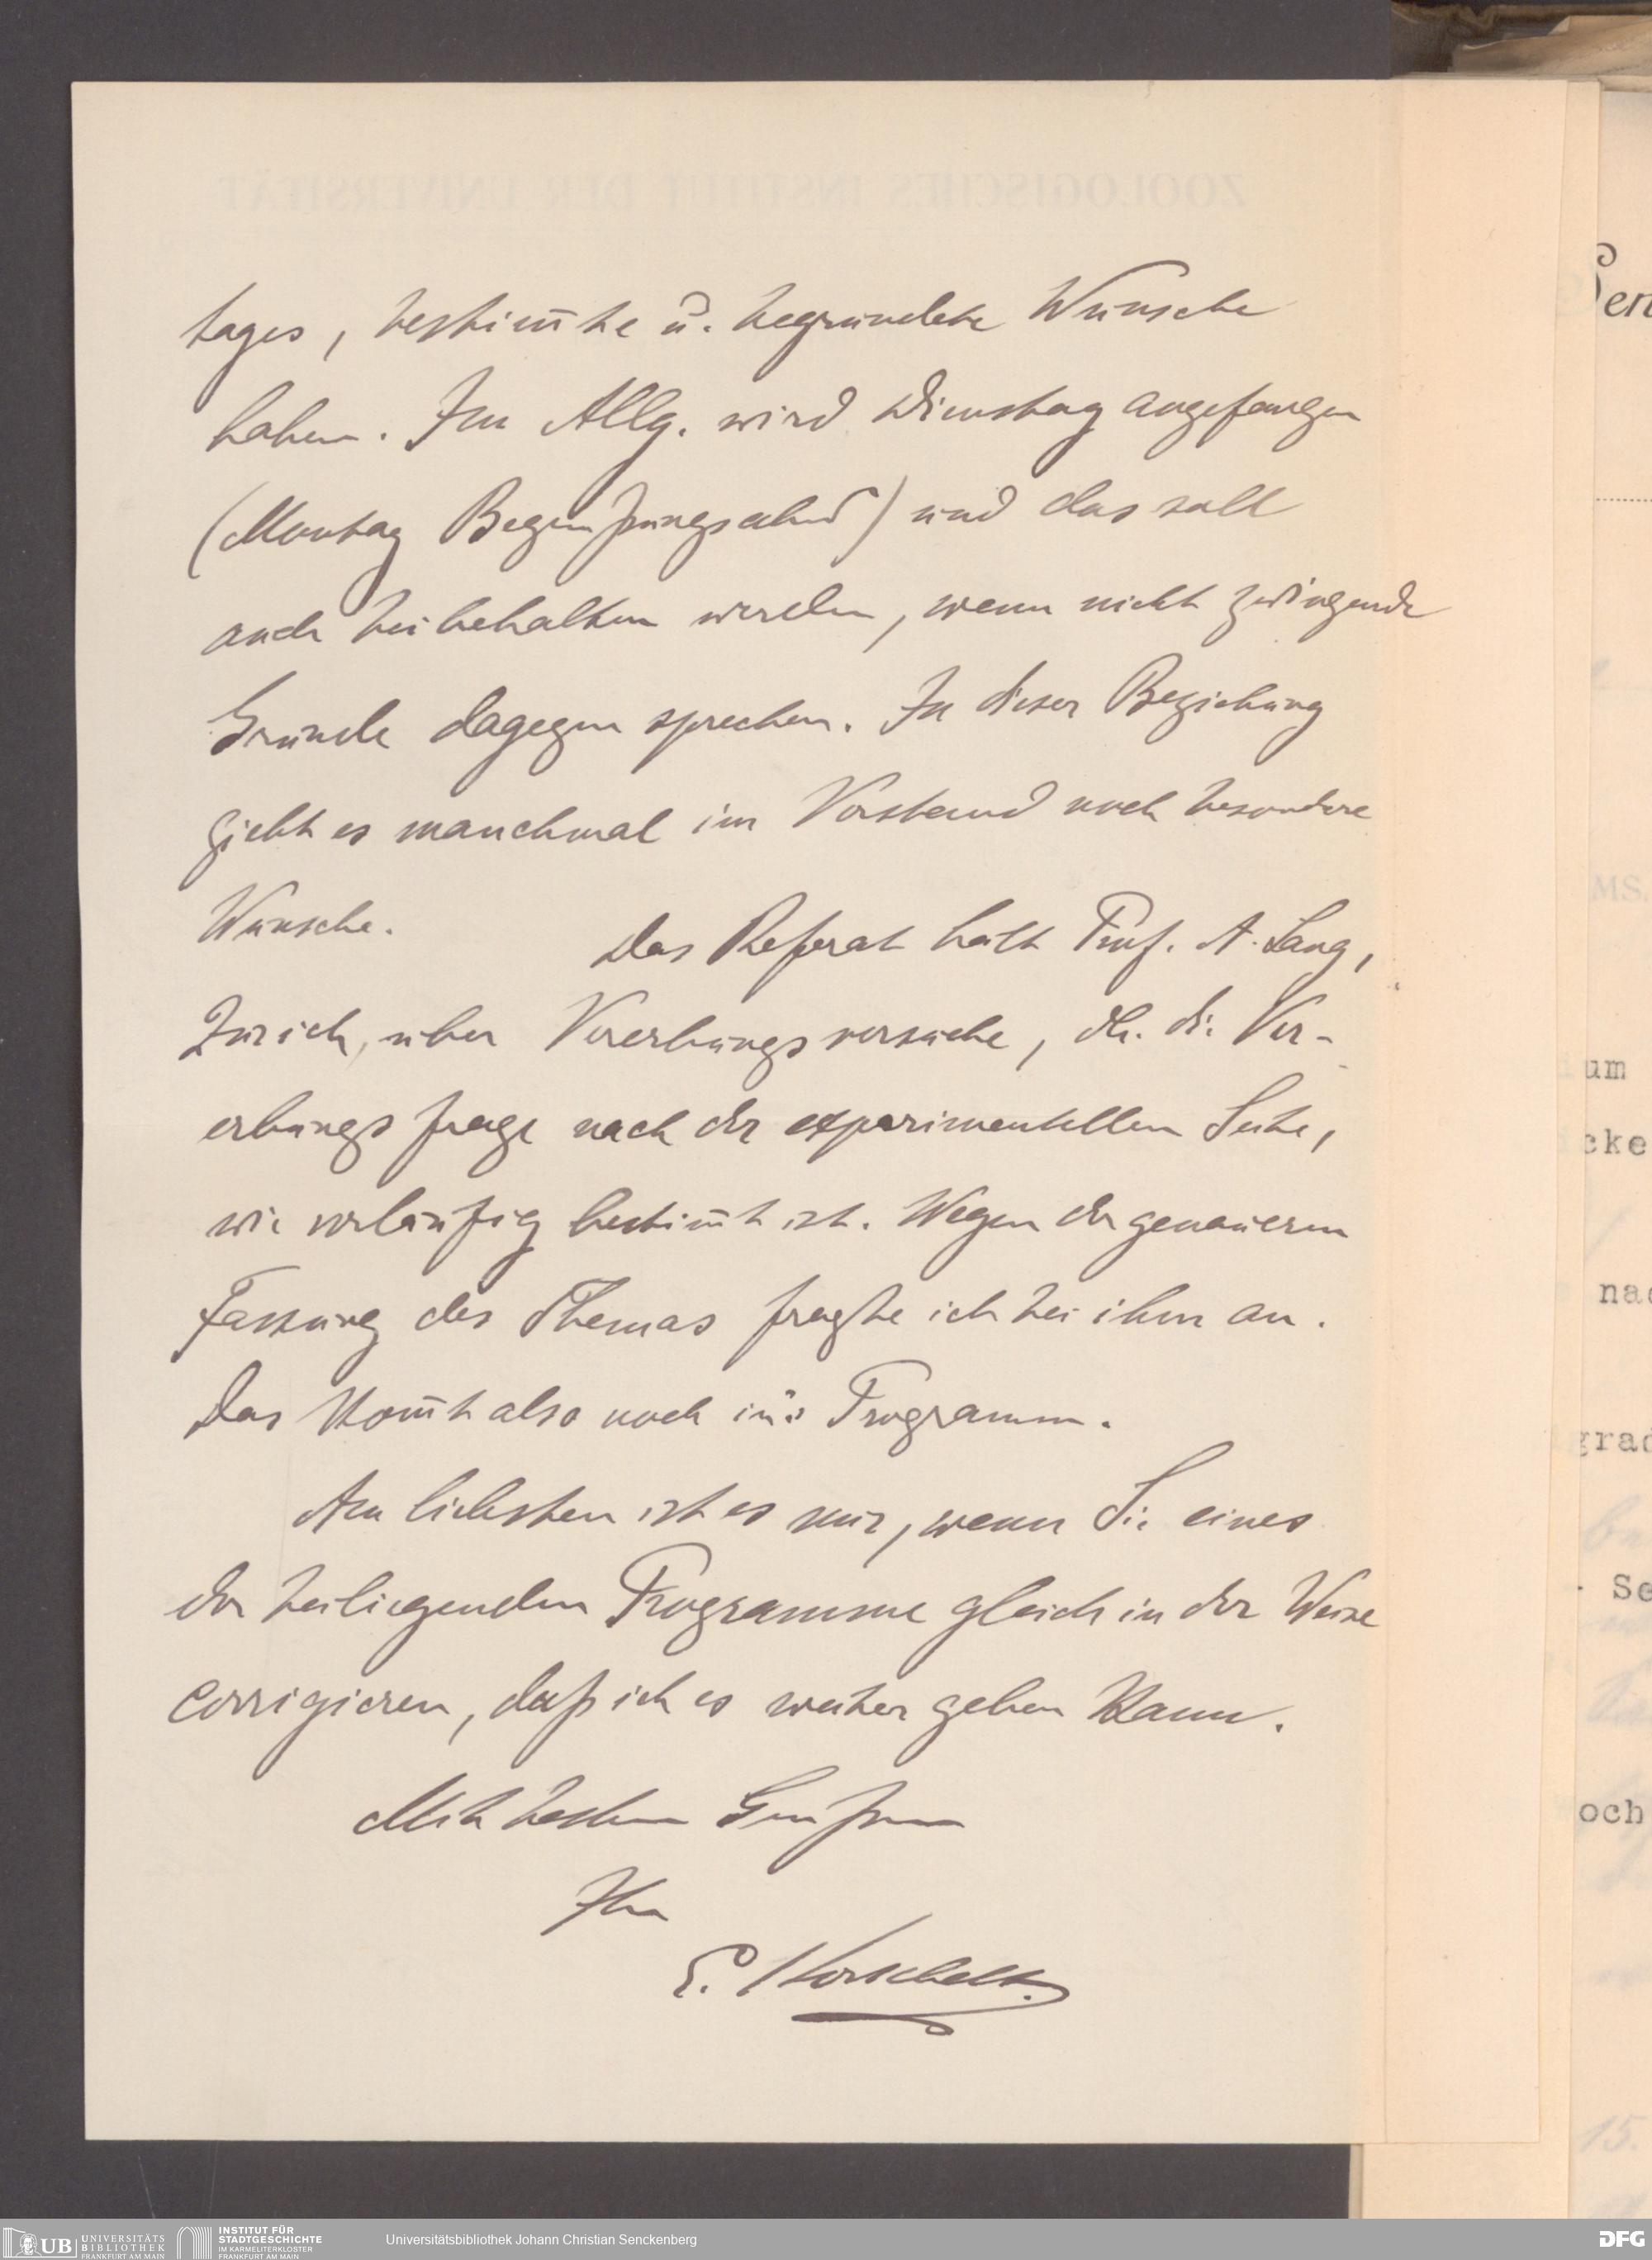 ZOOLOGISCHES INSTITUT DER UNIVERSITÄT
tages, bestim̅te u. begründete Wünsche
haben. Im Allg. wird Dienstag angefangen
(Montag Begrüßungsabend) und das soll
auch beibehalten werden, wenn nicht zwingende
Gründe dagegen sprechen. In dieser Beziehung
giebt es manchmal im Vorstand noch besondere
Wünsche.
Das Referat hält Prof. A. Lang,
Zürich, über Vererbungsversuche, dh. die Ver-
erbungsfrage nach der experimentellen Seite,
wie vorläufig bestim̅t ist. Wegen der genaueren
Fassung des Themas fragte ich bei ihm an.
Das kom̅t also noch in's Programm.
Am liebsten ist es mir, wenn Sie eines
der beiliegenden Programme gleich in der Weise
corrigieren, daß ich es weiter geben kann.
Mit besten Grüßen
Ihr
E. Korschelt.
en
MS.
um
cke
nac
grad
- Se
och
15.
UB UNIVERSITÄTS
BIBLIOTHEK
FRANKFURT AM MAIN
INSTITUT FÜR
STADTGESCHICHTE
IM KARMELITERKLOSTER
FRANKFURT AM MAIN
Universitätsbibliothek Johann Christian Senckenberg
DFG